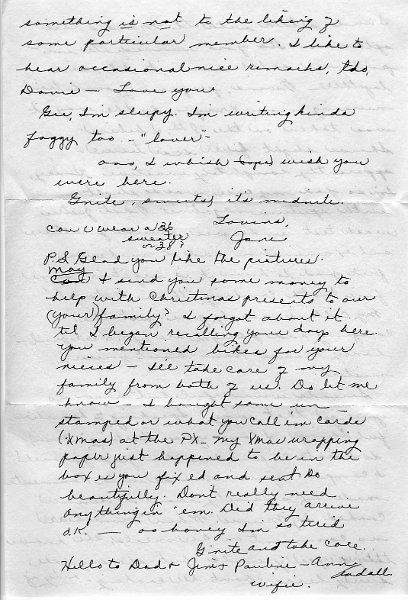 something is not to the liking of
some particular member. I like to
hear occasional nice remarks, tdo,
Donnie - Love you
Gee, I'm sleepy. I'm writing kinda
foggy too - "lover" -
ooo, I whish wish you
were here.
Gnite, sweets, it's midnite.
Lovins,
Jane
can U wear a 36
sweater
or 38?
P.S. Glad you like the pictures.
May
Can I send you some money to
help with Christmas presents to our
(your) family? I forgot about it
til I began recalling your days here
you mentioned bikes for your
nieces - I'll take care of my
family from both of us. Do let me
know - I bought some un-
stamped or what you call 'em cards
(Xmas) at the PX - my Xmas wrapping
paper just happened to be in the
boxes you fixed and sent so
beautifully. Don't really need
anything in 'em. Did they arrive
O.K. - oo honey I'm so tired
Gnite and take care
Hello to Dad & Jim & Pauline - Ann
& all
wifie.